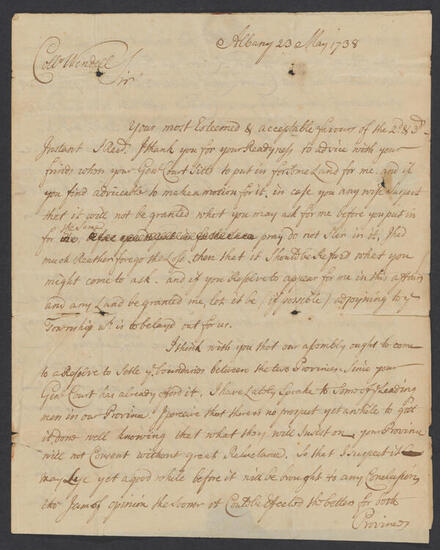 Albany 23 May 1738
Coll.o Wendell
Sir
Your most Esteemed & acceptable favour of the 2d & 3d
Instant I Recd. I thank you for your Readyness to advice with your
friends when your Gen.l Court Sitts to put in for some Land for me, and if
you find adviceable to make a motion for it, in case you any wise Suspect
that it will not be granted what you may ask for me before you put in
for the Same pray do not Ster in it, I had
much Reather forego the Loss, then that it Should be Refused what you
might come to ask. and if you Resolve to appear for me in this affair
and any Land be granted me, let it be (if possible) adjoyning to ye
Township wh. is to be layd out for us.
I think with you that our assembly ought to come
to a Resolve to Settle ye. Boundaries between the two Provinces, Since your
Gen.l Court has already offerd it. I have Lately Spoake to Some of ye Leading
men in our Province. I perceive that there is no prospect yet a while to Gett
it done well knowing that what they will Insist on your Province
will not Consent without great Reluctance. So that I Suspect it
may Lye yet a good while before it will be brought to any Conclusion
tho I am of opinion the Sooner it Could be Effected the better for both
Provinces